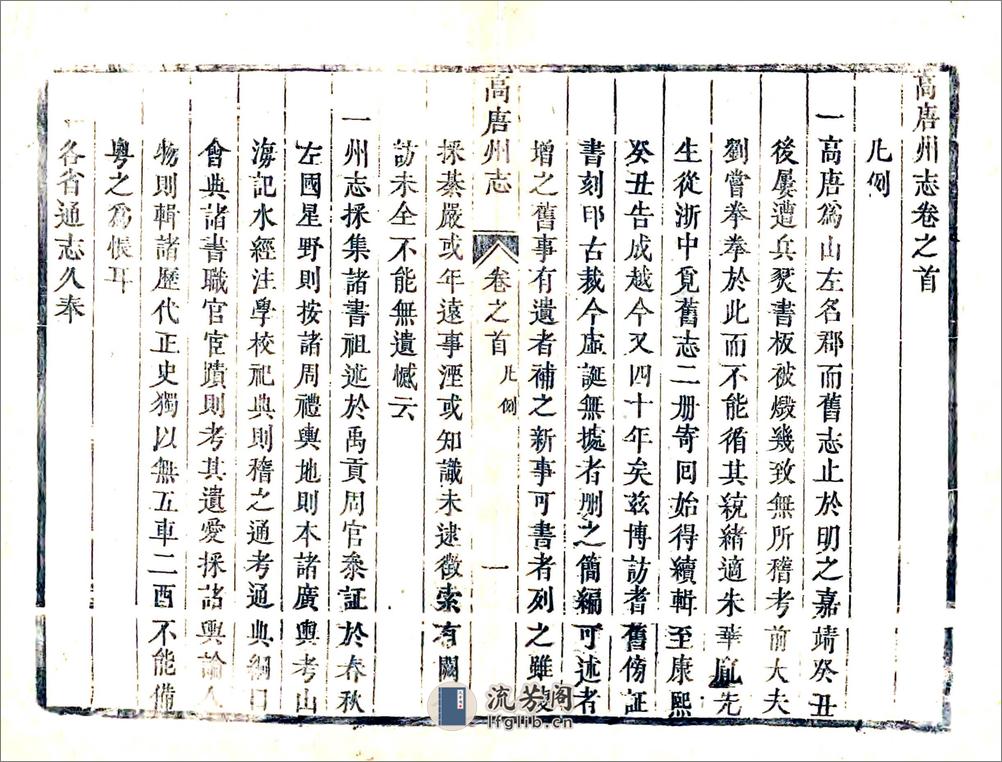 高唐州志卷之首
凡例
一高唐爲山左名郡而舊志止於明之嘉靖癸丑
後屢遭兵燹書板被燬幾致無所稽考前大夫
劉嘗拳拳於此而不能循其統緒適朱華胤先
生從浙中覓舊志二册寄回始得續輯至康熙
癸丑告成越今又四十年矣茲博訪耆舊傍証
書刻印古裁今虛誕無據者删之簡編可述者
增之舊事有遺者補之新事可書者列之雖
高唐州志
卷之首
凡例
一
採綦嚴或年遠事湮或知識未逮徵索有闕
訪未全不能無遺憾云
一州志採集諸書祖述於禹貢周官叅証於春秋
左國星野則按諸周禮輿地則本諸廣輿考山
海記水經注學校祀典則稽之通考通典綱目
會典諸書職官宦蹟則考其遺愛採諸輿論人
物則輯諸歷代正史獨以無五車二酉不能備
粵之爲悵耳
一各省通志久奉
流芳阁
lfglib.cn